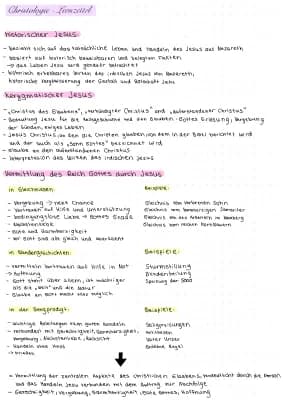 Christologie - Lernzettel
Historischer Jesus:
- bezieht sich auf das tatsächliche Leben und Handeln des Jesus aus Nazareth
- basiert auf historisch beweisbaren und belegten Fakten
→ das Leben Jesu wird genauer betrachtet
- historisch erkennbares Wirken des irdischen Jesus von Nazareth,
historische der Gestalt und Botschaft Jesu
Kerygmatischer Jesus:
- "Christus des Glaubens", "verkündigter Christus" und "auferstandener Christus"
- Bedeutung Jesu für die und den Glauben: Gottes Erlösung, Vergebung
der Sünden, ewiges Leben
- Jesus Christus, an den die Christen glauben, von dem in der Bibel berichtet wird
und der auch als "Sohn Gottes" bezeichnet wird
- Glaube an den auferstandenen Christus
- Interpretation des Wirken des irdischen Jesus
Vermittlung des Reich Gottes durch Jesus
in Gleichnissen
Beispiele:
- Vergebung → neue Chance
Gleichnis vom verlorenen Sohn
- Vertrauen auf Hilfe und Unterstützung
Gleichnis vom barmherzigen Samariter
- bedingungslose Liebe → Gottes Gnade
Gleichnis von den Arbeitern im Weinberg
- Nächstenliebe
- Güte und Barmherzigkeit
- vor Gott sind alle gleich und wertvoll
in Wundergeschichten
Beispiele:
- vermitteln Vertrauen auf Hilfe in Not
Sturmstillung
→ Hoffnung
Blindenheilung
- Gott steht über allem, ist mächtiger
Speisung der 5000
als die und die Natur
- Glaube an Gott macht alles möglich
in der Bergpredigt:
Beispiele:
- wichtige Anleitungen zum guten Handeln
Seligpreisungen
- verbunden mit Gerechtigkeit, Barmherzigkeit,
Antithesen
Vergebung, Nächstenliebe,
Vater Unser
- Handeln ohne Hass
Goldene Regel
→ Frieden
- Vermittlung der zentralen Aspekte des christlichen Glaubens, verdeutlicht durch die Person
und das Handeln Jesu verbunden mit dem Auftrag zur Nachfolge
- Gerechtigkeit, Vergebung, Barmherzigkeit, Liebe Gottes, Hoffnung